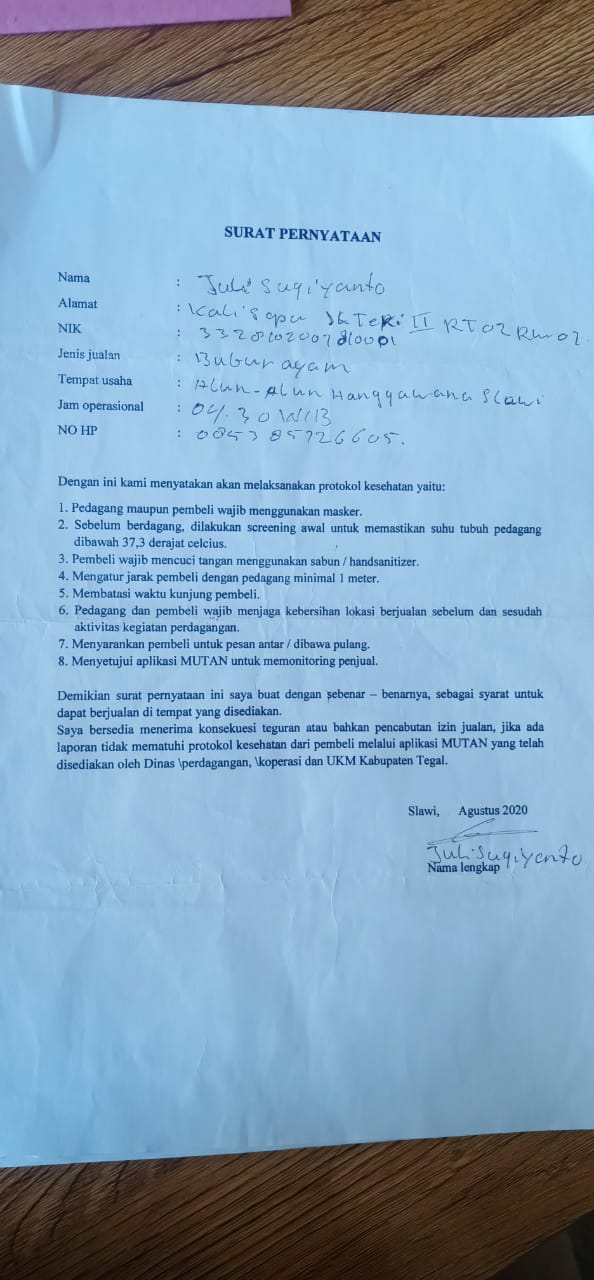 SURAT PERNYATAAN
Nama : Juli Sugiyanto
Alamat : Kalisapu RT 02 RW 02
NIK :
Jenis jualan : Bubur ayam
Tempat usaha : Alun-Alun Hanggawana Slawi
Jam operasional : 04.30 WIB
NO HP : 085385726605.
Dengan ini kami menyatakan akan melaksanakan protokol kesehatan yaitu:
1. Pedagang maupun pembeli wajib menggunakan masker.
2. Sebelum berdagang, dilakukan screening awal untuk memastikan suhu tubuh pedagang
dibawah 37,3 derajat celcius.
3. Pembeli wajib mencuci tangan menggunakan sabun / handsanitizer.
4. Mengatur jarak pembeli dengan pedagang minimal 1 meter.
5. Membatasi waktu kunjung pembeli.
6. Pedagang dan pembeli wajib menjaga kebersihan lokasi berjualan sebelum dan sesudah
aktivitas kegiatan perdagangan.
7. Menyarankan pembeli untuk pesan antar / dibawa pulang.
8. Menyetujui aplikasi MUTAN untuk memonitoring penjual.
Demikian surat pernyataan ini saya buat dengan sebenar – benarnya, sebagai syarat untuk
dapat berjualan di tempat yang disediakan.
Saya bersedia menerima konsekuesi teguran atau bahkan pencabutan izin jualan, jika ada
laporan tidak mematuhi protokol kesehatan dari pembeli melalui aplikasi MUTAN yang telah
disediakan oleh Dinas \perdagangan, \koperasi dan UKM Kabupaten Tegal.
Slawi, Agustus 2020
Juli Sugiyanto
Nama lengkap